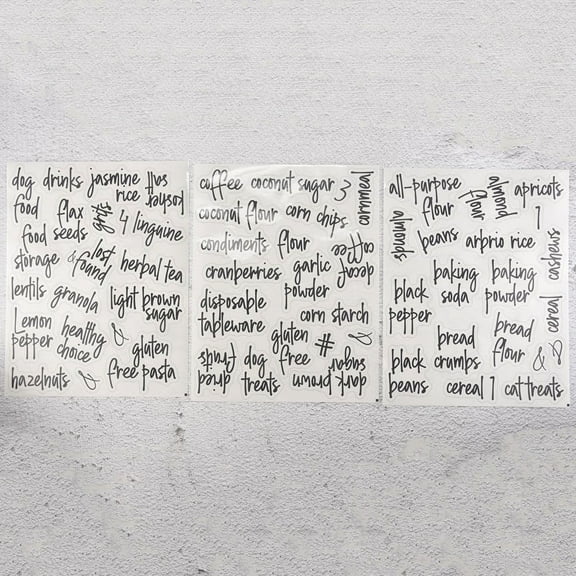 dog food
drinks
jasmine rice
kosher salt
flax seeds
gifts
4
linguine
food storage
lost & found
herbal tea
lentils
granola
light brown sugar
Lemon pepper
healthy choice
&
gluten free pasta
hazelnuts
&
coffee
coconut sugar
3
cornmeal
coconut flour
corn chips
condiments
flour
decaf coffee
cranberries
garlic powder
disposable tableware
corn starch
gluten free
#
&
dried fruits
dog treats
dark brown sugar
all-purpose flour
almond flour
apricots
1
almonds
beans
arbrio rice
cashews
black pepper
baking soda
baking powder
cereal
bread crumbs
bread flour
&
black beans
cereal
1
cat treats